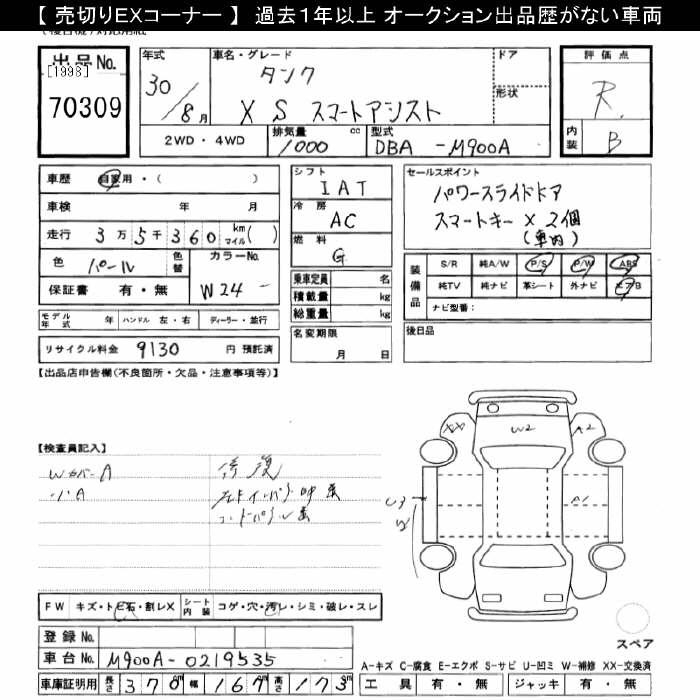 【 売切りEXコーナー 】 過去１年以上 オークション出品歴がない車両
出品No.
[1998]
70309
年式 30/8月
車名・グレード タンク
X S スマートアシスト
ドア
形状
評価点 R
内装 B
2WD・4WD
排気量 1000 cc
型式 DBA -M900A
車歴 自家用・( )
車検 年 月
走行 3万5千360 km マイル( )
色 パール 色替
カラーNo. W24 -
保証書 有・無
モデル年式 年 ハンドル 左・右 ディーラー・並行
リサイクル料金 9130 円 預託済
シフト IAT
冷房 AC
燃料 G
乗車定員 名
積載量 kg
総重量 kg
名変期限 月 日
セールスポイント
パワースライドドア
スマートキー X 2個
(車内)
装備品
S/R 純A/W P/S P/W ABS
純TV 純ナビ 革シート 外ナビ エアB
ナビ型番：
後日品
【出品店申告欄(不良箇所・欠品・注意事項等)】
【検査員記入】
Wカバー A
修復
XX W2 A2
U3
W2
A1
FW キズ・ト E石・割レX シート内装 コゲ・穴・汚レ・シミ・破レ・スレ
登録No.
車台No. M900A-0219535
車庫証明用 長さ 370m 幅 167m 高さ 173m
スペア
A-キズ C-腐食 E-エクボ S-サビ U-凹ミ W-補修 XX-交換済
工具 有・無 ジャッキ 有・無